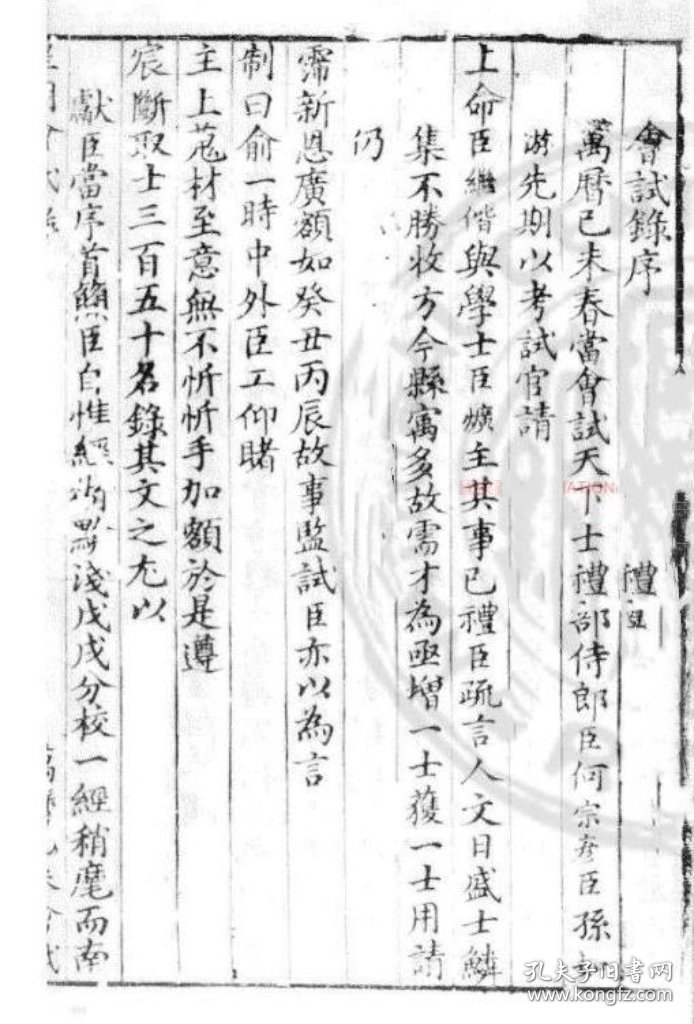 會試錄序
禮
萬曆己未春當會試天下士禮部侍郎臣何宗彥臣孫如
游先期以考試官請
上命臣繼偕與學士臣爌主其事已禮臣疏言人文日盛士鱗
集不勝收方今縣寓多故需才為亟增一士獲一士用請
仍
霈新恩廣額如癸丑丙辰故事監試臣亦以為言
制曰俞一時中外臣工仰睹
主上蒐材至意無不忻忻手加額於是遵
宸斷取士三百五十名錄其文之尤以
獻臣當序首簡臣自惟經術黯淺戊戌分校一經稍麾而南
會試錄
萬曆己未會試
孔夫子旧书网
www.kongfz.com